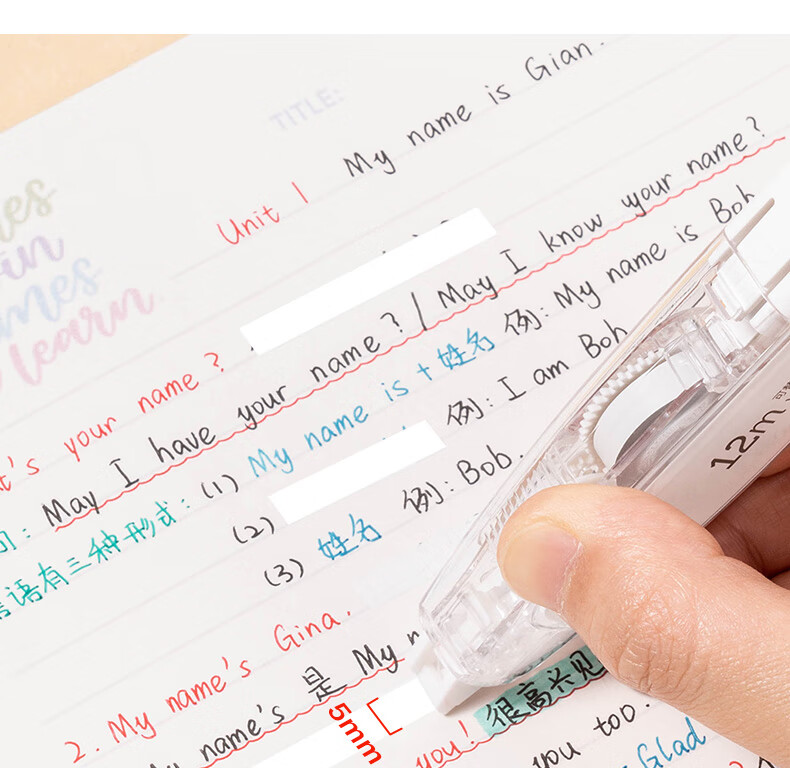 TITLE:
Unit 1 My name is Gian.
learn
your name?
May I have your name? / May I know your name?
语有三种形式: (1) My name is + 姓名 例: My name is Bob
(2) 例: I am Bob
(3) 姓名 例: Bob.
2. My name's Gina.
name's 是 My
you! 很高兴见
you too.
Glad
5mm
12m